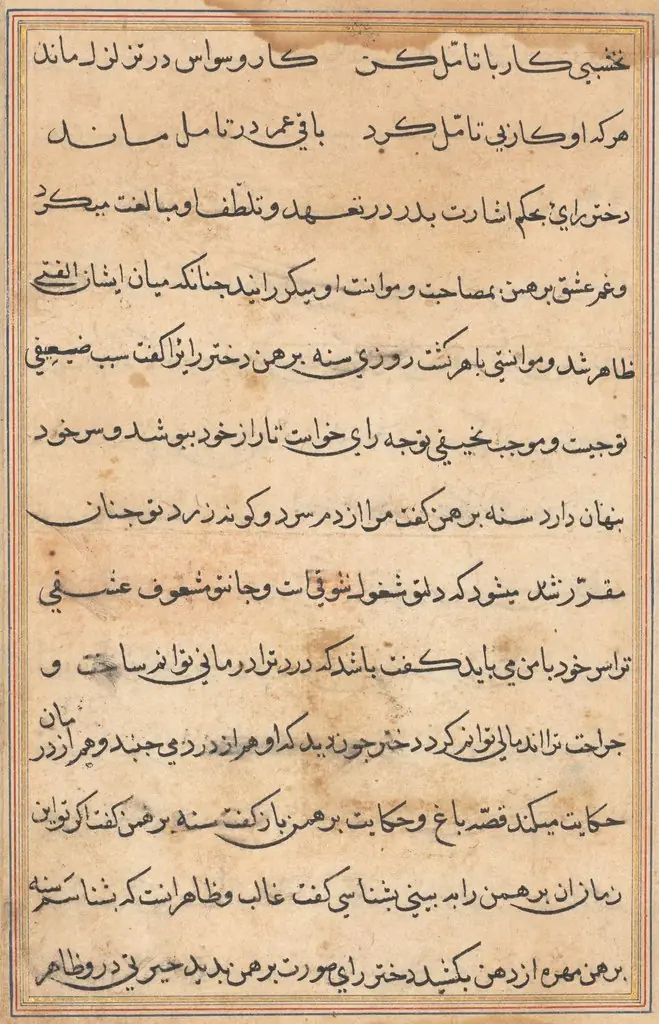 نخشبی کار با تامّل کن کار وسواس در تزلزل ماند
هر که او کار بی تامّل کرد باقی عمر در تامل ماند
دختر رای بحکم اشارت پدر در تعهد و تلطّف او مبالغت میکرد
و غم عشق برهمن بمصاحبت و موانست او میکررانید جنانکه میان ایشان الفتی
ظاهر شد و موانستی باهر کشت روزی سنه برهمن دختر رایرا کفت سبب ضیعیفی
تو جیست و موجب نحیفی تو جه رای خواست تا راز خود ببوشد و سر خود
بنهان دارد سنه برهمن کفت مرا از دم سرد و کونه زرد تو جنان
مقرّر شد میشود که دل تو مشغول شوقی است و جان تو مشعوف عشقی
ترا سر خود با من می باید کفت باشد که درد ترا درمانی توانم ساخت و
جراحت ترا اندمالی توانم کرد دختر جون دید که او هم از درد می جنبد و هم از درمان
حکایت میکند قصّه باغ و حکایت برهمن باز کفت سنه برهمن کفت اکر تو این
زمان ان برهمن را به بینی بشناسی کفت غالب و ظاهر انست که بشناسم سنه
برهن مهره از دهن بکشید دختر رای صورت برهمن بدید حیرتی در و ظاهر